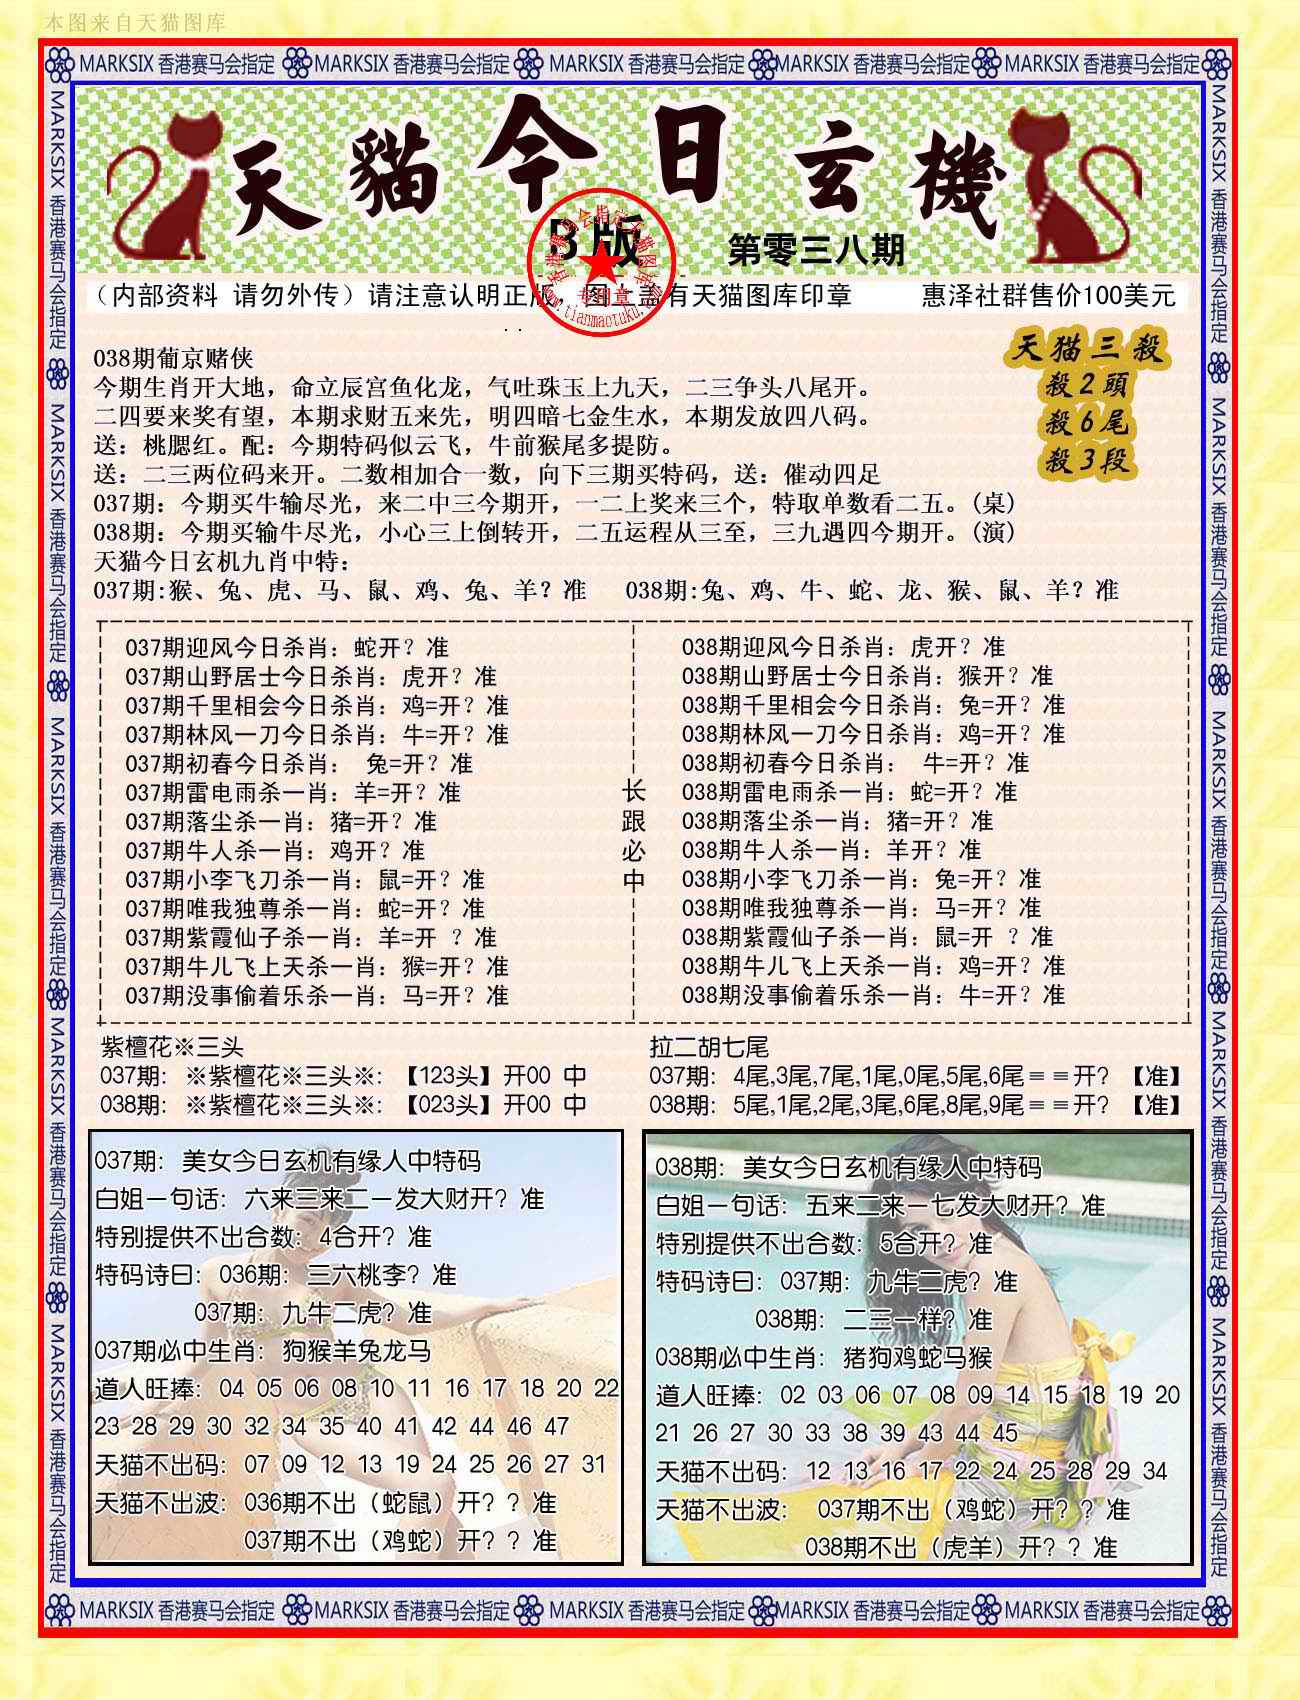 本图来自天猫图库
MARKSIX 香港赛马会指定 MARKSIX 香港赛马会指定 MARKSIX 香港赛马会指定 MARKSIX 香港赛马会指定 MARKSIX 香港赛马会指定
MARKSIX 香港赛马会指定 MARKSIX 香港赛马会指定 MARKSIX 香港赛马会指定 MARKSIX 香港赛马会指定 MARKSIX 香港赛马会指定
MARKSIX 香港赛马会指定 MARKSIX 香港赛马会指定 MARKSIX 香港赛马会指定 MARKSIX 香港赛马会指定 MARKSIX 香港赛马会指定
天貓今日玄機
B版
第零三八期
香港赛马会指定天猫图库
专用章
www.tianmaotuku.com
（内部资料 请勿外传）请注意认明正版，图上盖有天猫图库印章 惠泽社群售价100美元
天猫三殺
殺2頭
殺6尾
殺3段
038期葡京赌侠
今期生肖开大地，命立辰宫鱼化龙，气吐珠玉上九天，二三争头八尾开。
二四要来奖有望，本期求财五来先，明四暗七金生水，本期发放四八码。
送：桃腮红。配：今期特码似云飞，牛前猴尾多提防。
送：二三两位码来开。二数相加合一数，向下三期买特码，送：催动四足
037期：今期买牛输尽光，来二中三今期开，一二上奖来三个，特取单数看二五。(桌)
038期：今期买输牛尽光，小心三上倒转开，二五运程从三至，三九遇四今期开。(演)
天猫今日玄机九肖中特：
037期:猴、兔、虎、马、鼠、鸡、兔、羊？准 038期:兔、鸡、牛、蛇、龙、猴、鼠、羊？准
037期迎风今日杀肖：蛇开？准
037期山野居士今日杀肖：虎开？准
037期千里相会今日杀肖：鸡=开？准
037期林风一刀今日杀肖：牛=开？准
037期初春今日杀肖： 兔=开？准
037期雷电雨杀一肖：羊=开？准
037期落尘杀一肖：猪=开？准
037期牛人杀一肖：鸡开？准
037期小李飞刀杀一肖：鼠=开？准
037期唯我独尊杀一肖：蛇=开？准
037期紫霞仙子杀一肖：羊=开 ？准
037期牛儿飞上天杀一肖：猴=开？准
037期没事偷着乐杀一肖：马=开？准
长跟必中
038期迎风今日杀肖：虎开？准
038期山野居士今日杀肖：猴开？准
038期千里相会今日杀肖：兔=开？准
038期林风一刀今日杀肖：鸡=开？准
038期初春今日杀肖： 牛=开？准
038期雷电雨杀一肖：蛇=开？准
038期落尘杀一肖：猪=开？准
038期牛人杀一肖：羊开？准
038期小李飞刀杀一肖：兔=开？准
038期唯我独尊杀一肖：马=开？准
038期紫霞仙子杀一肖：鼠=开 ？准
038期牛儿飞上天杀一肖：鸡=开？准
038期没事偷着乐杀一肖：牛=开？准
紫檀花※三头
037期：※紫檀花※三头※:【123头】开00 中
038期：※紫檀花※三头※:【023头】开00 中
拉二胡七尾
037期：4尾,3尾,7尾,1尾,0尾,5尾,6尾＝＝开？【准】
038期：5尾,1尾,2尾,3尾,6尾,8尾,9尾＝＝开？【准】
037期：美女今日玄机有缘人中特码
白姐一句话：六来三来二一发大财开？准
特别提供不出合数：4合开？准
特码诗曰：036期：三六桃李？准
037期：九牛二虎？准
037期必中生肖：狗猴羊兔龙马
道人旺捧：04 05 06 08 10 11 16 17 18 20 22
23 28 29 30 32 34 35 40 41 42 44 46 47
天猫不出码：07 09 12 13 19 24 25 26 27 31
天猫不出波：036期不出（蛇鼠）开？？准
037期不出（鸡蛇）开？？准
038期：美女今日玄机有缘人中特码
白姐一句话：五来二来一七发大财开？准
特别提供不出合数：5合开？准
特码诗曰：037期：九牛二虎？准
038期：二三一样？准
038期必中生肖：猪狗鸡蛇马猴
道人旺捧：02 03 06 07 08 09 14 15 18 19 20
21 26 27 30 33 38 39 43 44 45
天猫不出码：12 13 16 17 22 24 25 28 29 34
天猫不出波： 037期不出（鸡蛇）开？？准
038期不出（虎羊）开？？准
MARKSIX 香港赛马会指定 MARKSIX 香港赛马会指定 MARKSIX 香港赛马会指定 MARKSIX 香港赛马会指定 MARKSIX 香港赛马会指定